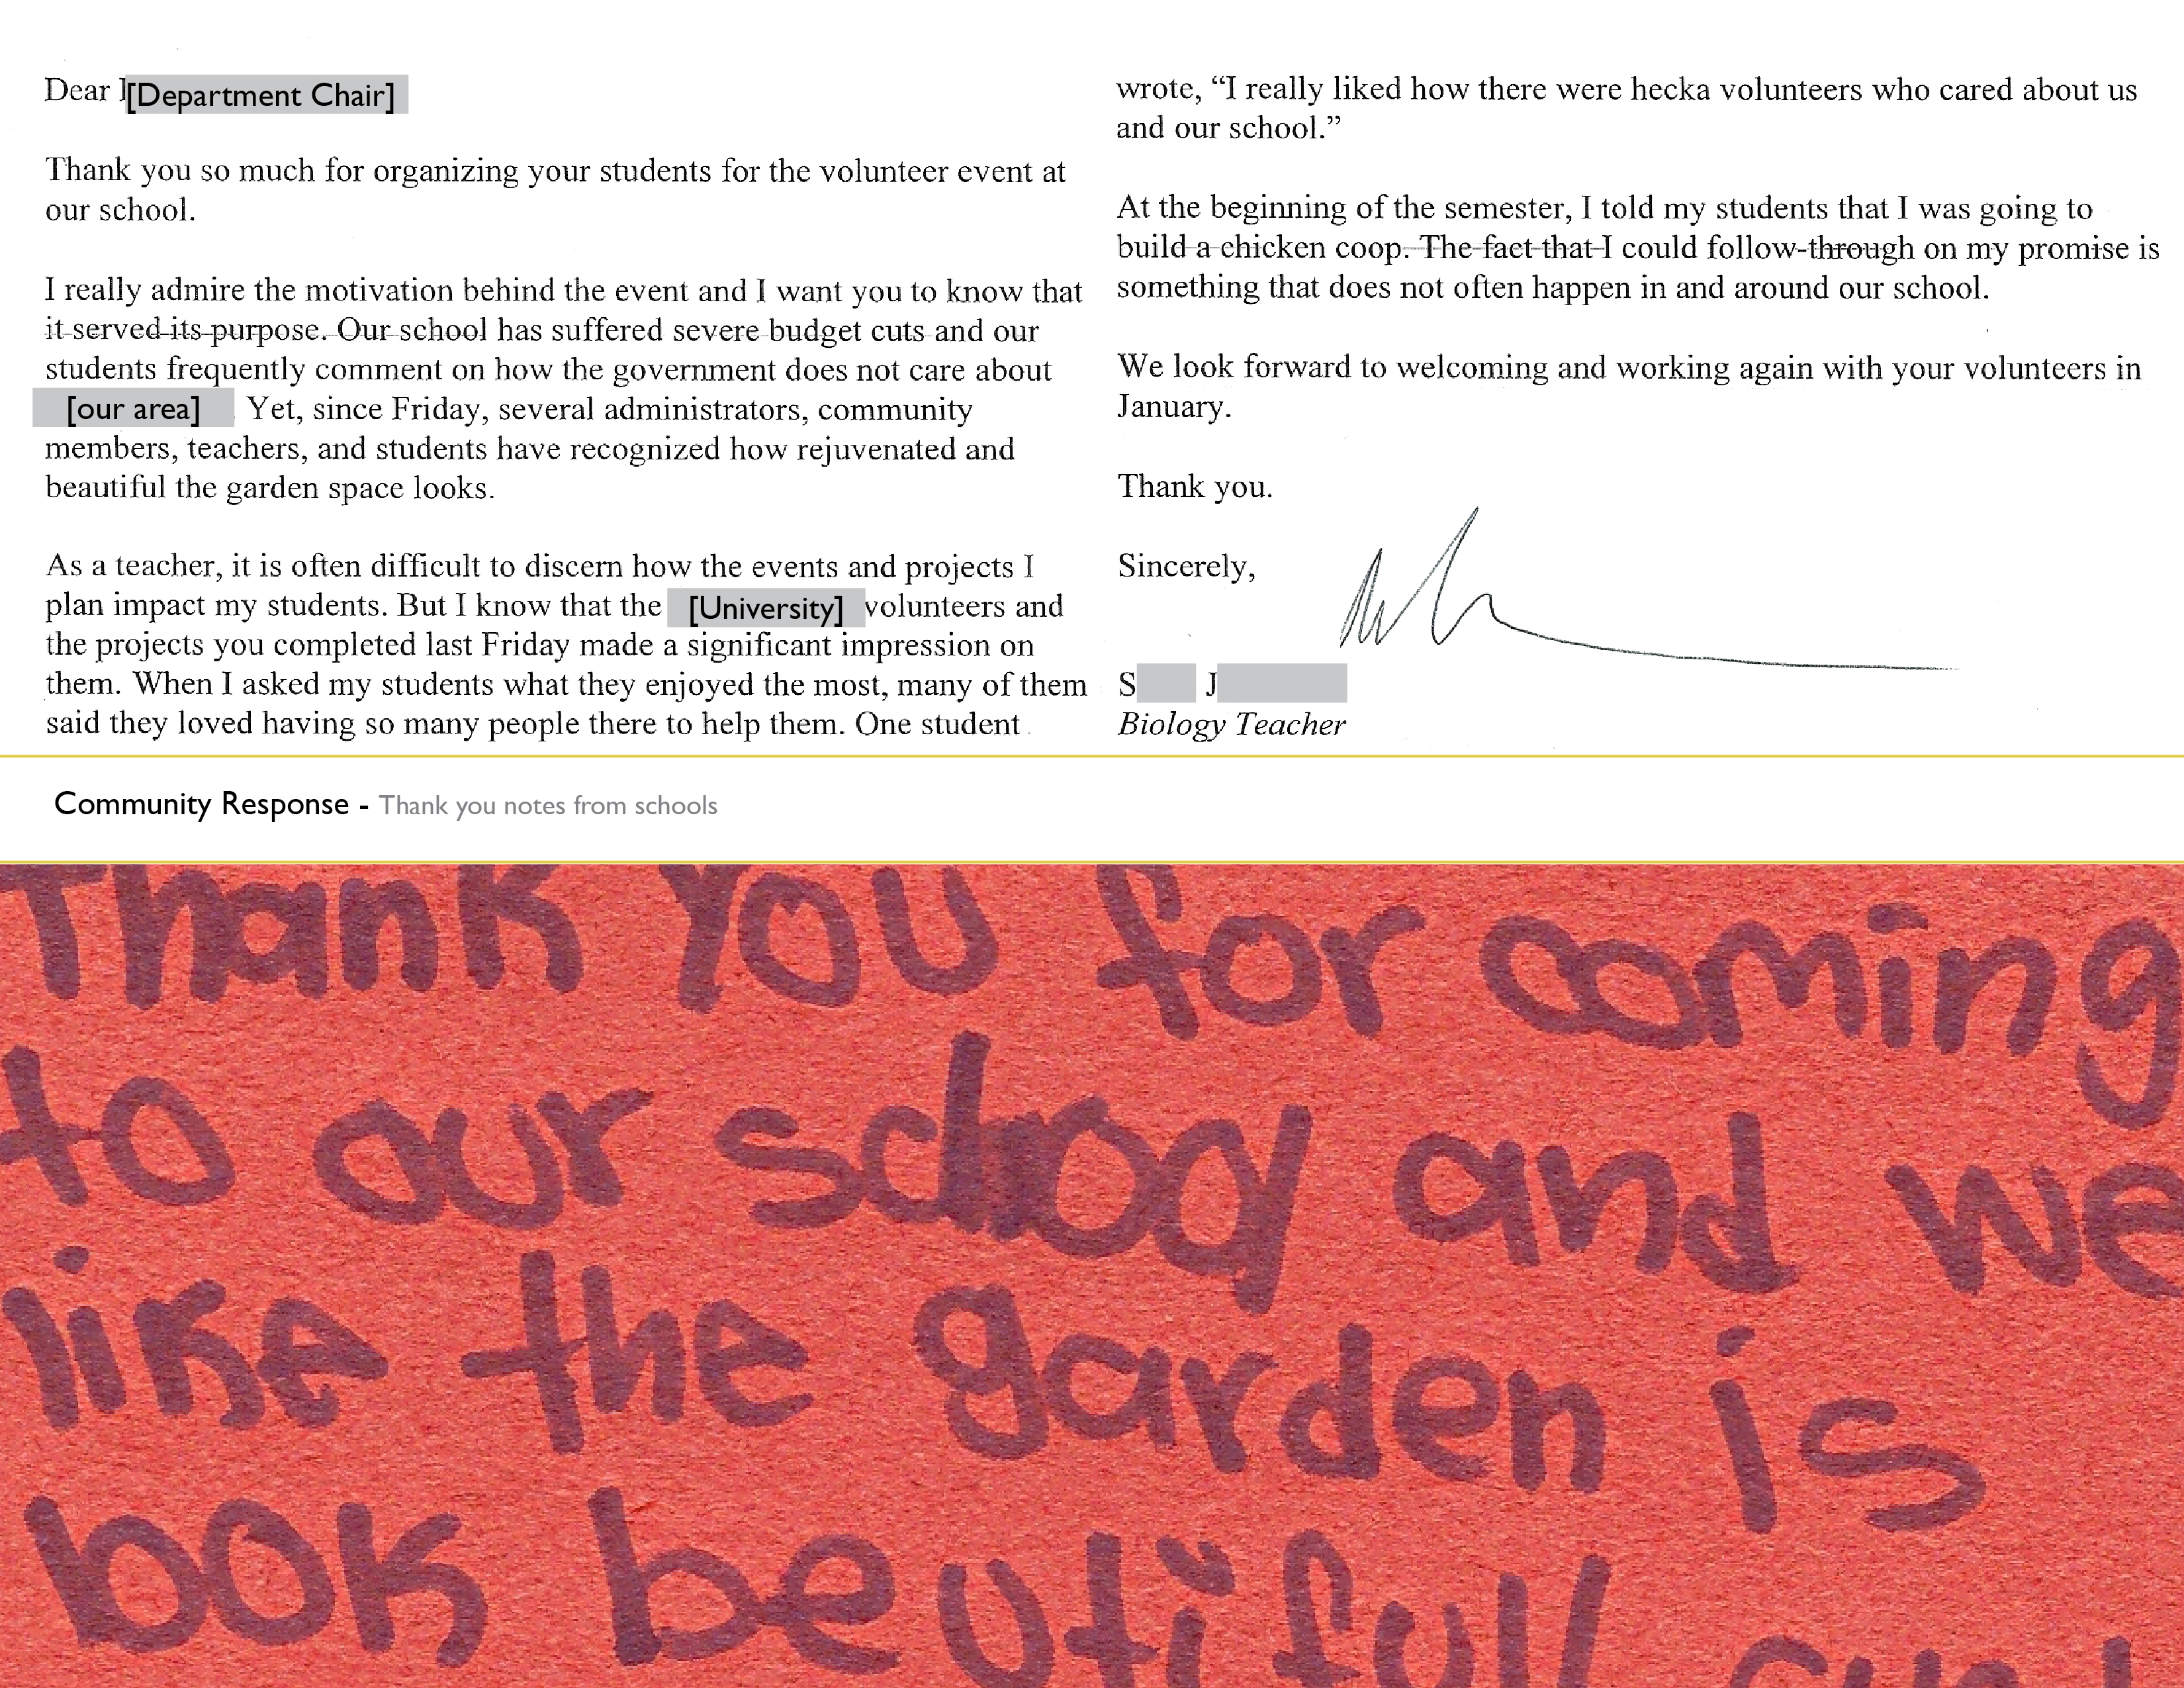 Dear [Department Chair]
Thank you so much for organizing your students for the volunteer event at
our school.
I really admire the motivation behind the event and I want you to know that
it served its purpose. Our school has suffered severe budget cuts and our
students frequently comment on how the government does not care about
[our area] Yet, since Friday, several administrators, community
members, teachers, and students have recognized how rejuvenated and
beautiful the garden space looks.
As a teacher, it is often difficult to discern how the events and projects I
plan impact my students. But I know that the [University] volunteers and
the projects you completed last Friday made a significant impression on
them. When I asked my students what they enjoyed the most, many of them
said they loved having so many people there to help them. One student
wrote, “I really liked how there were hecka volunteers who cared about us
and our school.”
At the beginning of the semester, I told my students that I was going to
build a chicken coop. The fact that I could follow-through on my promise is
something that does not often happen in and around our school.
We look forward to welcoming and working again with your volunteers in
January.
Thank you.
Sincerely,
S J
Biology Teacher
Community Response - Thank you notes from schools
Thank you for coming
to our school and we
like the garden is
book beutifull